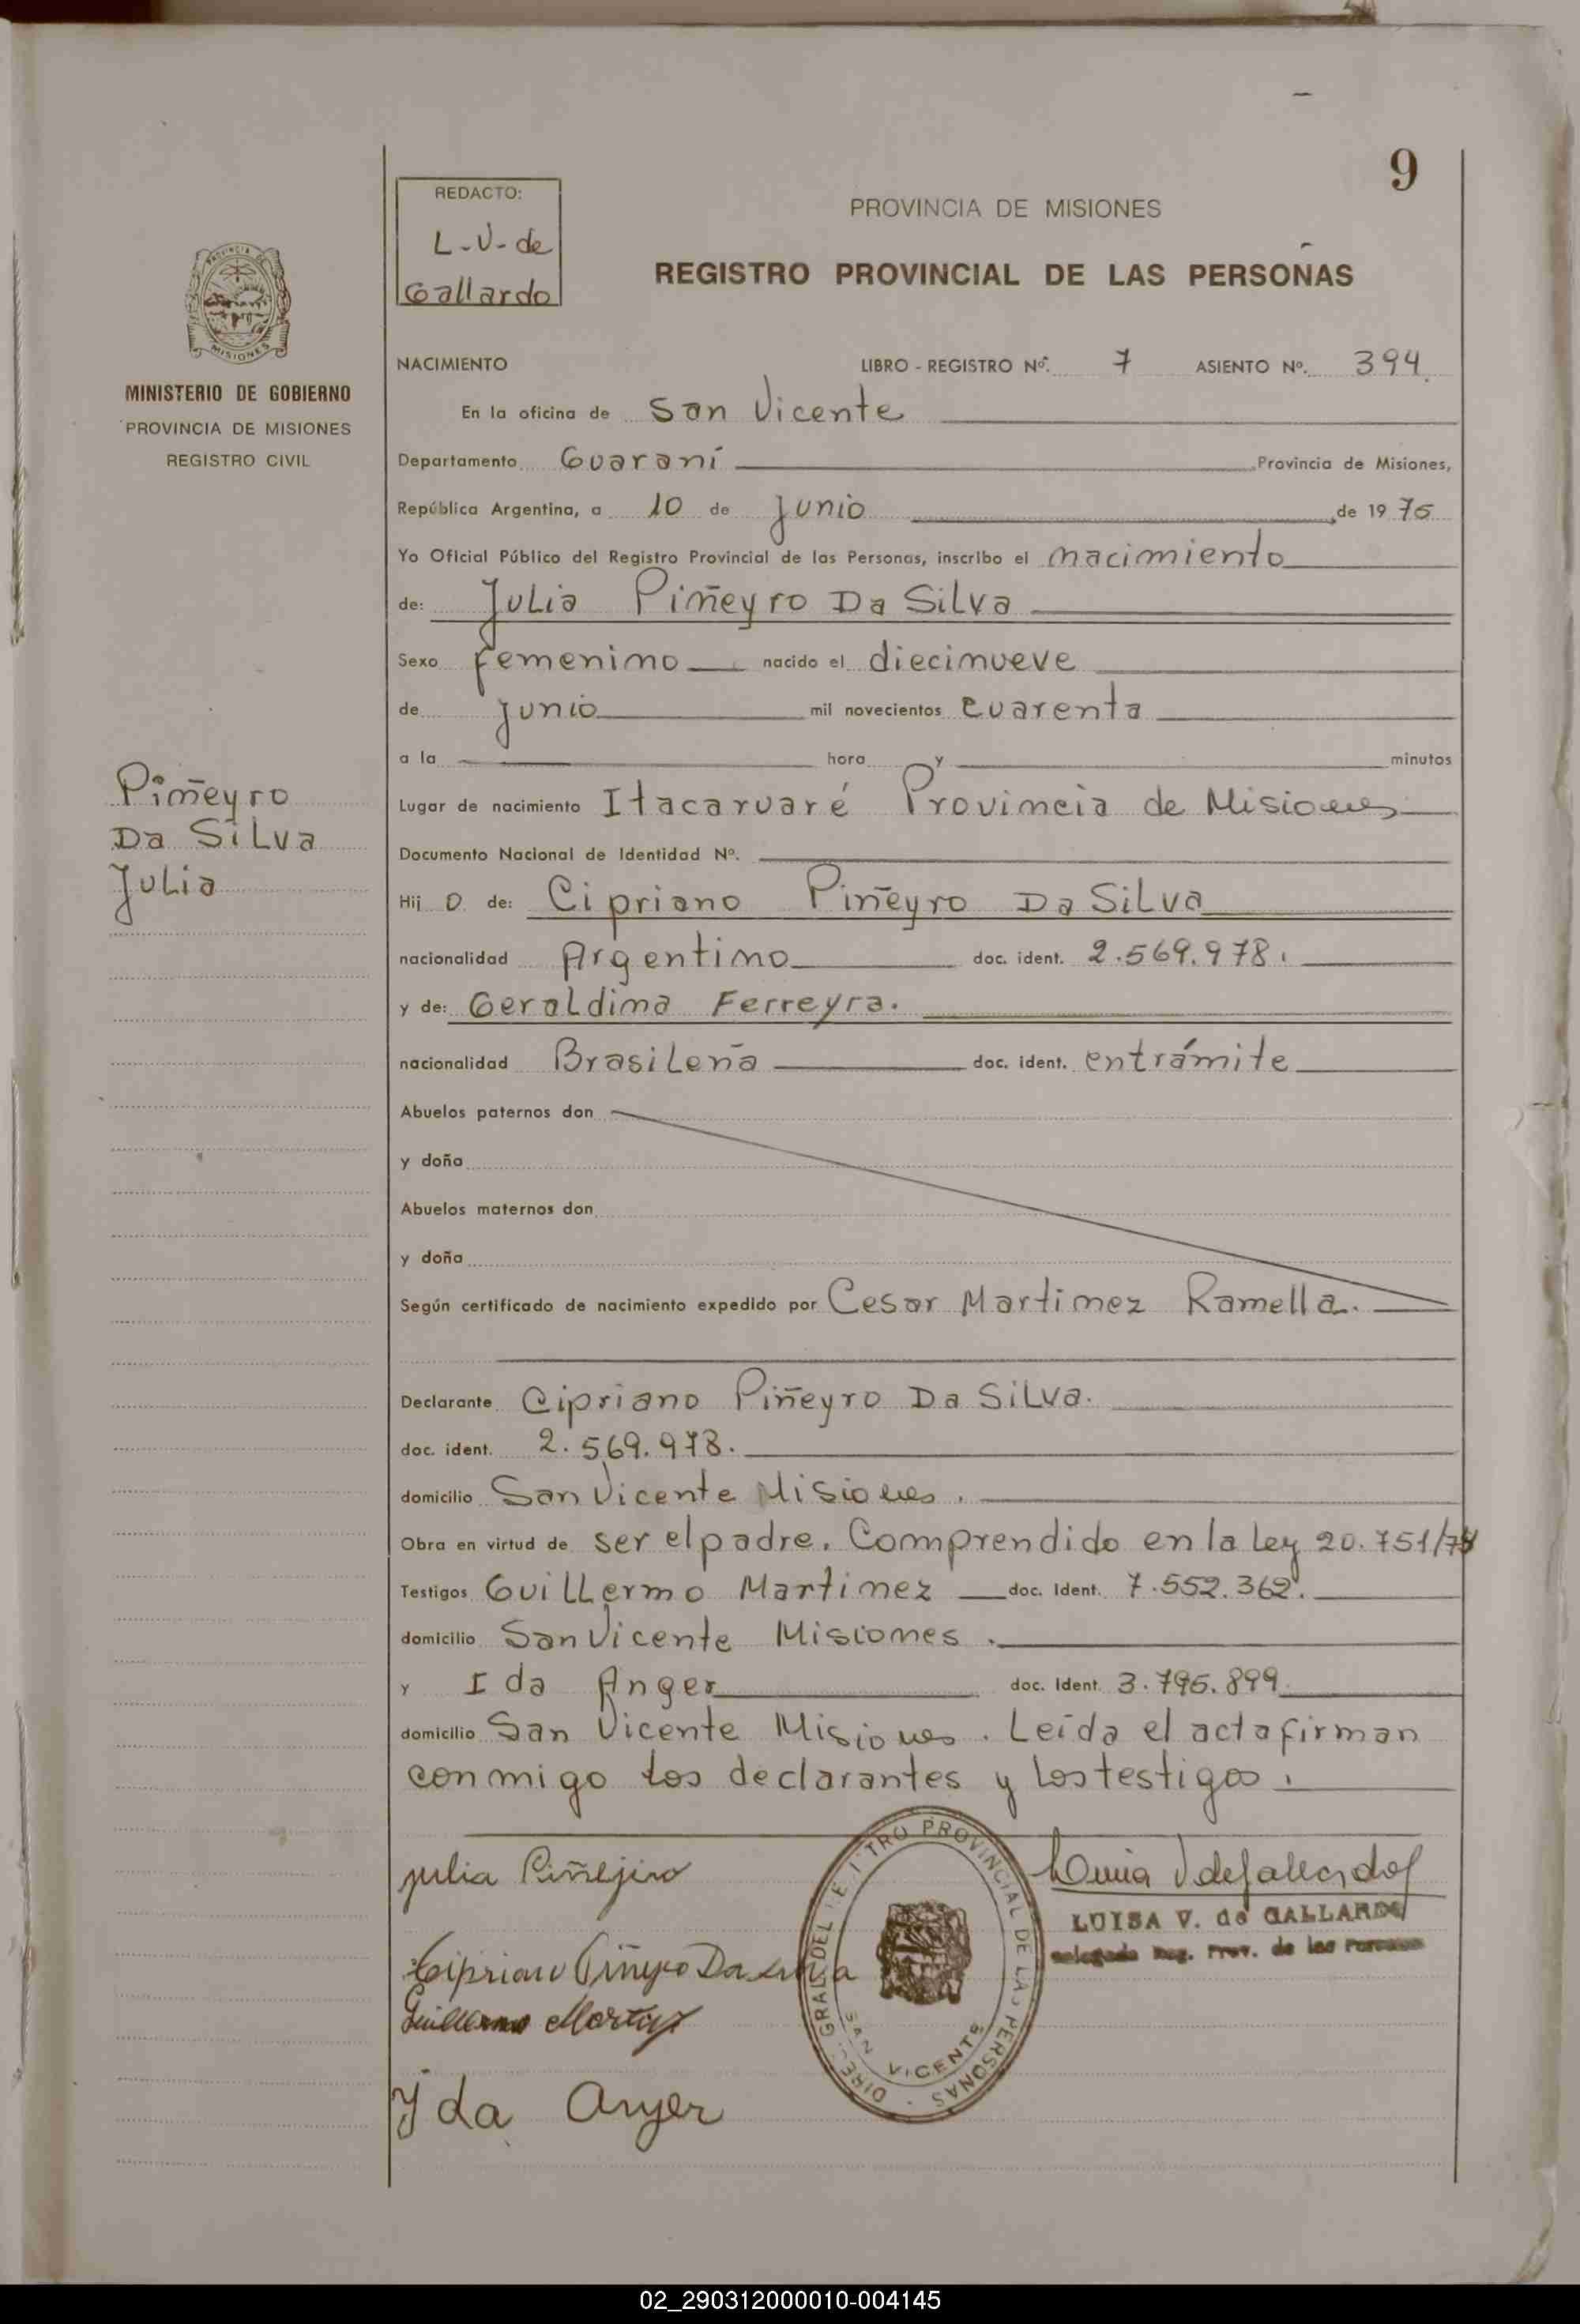 9
REDACTO:
L-V- de
Gallardo
PROVINCIA DE MISIONES
REGISTRO PROVINCIAL DE LAS PERSONAS
PROVINCIA DE
MISIONES
MINISTERIO DE GOBIERNO
PROVINCIA DE MISIONES
REGISTRO CIVIL
NACIMIENTO LIBRO - REGISTRO Nº. 7 ASIENTO Nº. 394.
En la oficina de San Vicente
Departamento Guaraní Provincia de Misiones,
República Argentina, a 10 de junio de 1975
Yo Oficial Público del Registro Provincial de las Personas, inscribo el nacimiento
de: Julia Piñeyro Da Silva
Sexo femenino nacido el diecinueve
de junio mil novecientos cuarenta
a la hora y minutos
Piñeyro
Da Silva
Julia
Lugar de nacimiento Itacaruaré Provincia de Misiones
Documento Nacional de Identidad Nº.
Hij o de: Cipriano Piñeyro Da Silva
nacionalidad Argentino doc. ident. 2.569.978.
y de: Geraldina Ferreyra.
nacionalidad Brasileña doc. ident. entrámite
Abuelos paternos don
y doña
Abuelos maternos don
y doña
Según certificado de nacimiento expedido por Cesar Martinez Ramella.
Declarante Cipriano Piñeyro Da Silva.
doc. ident. 2.569.978.
domicilio San Vicente Misiones.
Obra en virtud de ser el padre. Comprendido en la Ley 20.751/74
Testigos Guillermo Martinez doc. Ident. 7.552.362.
domicilio San Vicente Misiones.
y Ida Anger doc. Ident. 3.795.899.
domicilio San Vicente Misiones. Leída el acta firman
conmigo los declarantes y los testigos.
julia Piñejro
Cipriano Piñeyro Da silva
Guillermo Martinez
Ida Anger
PROVINCIAL DE LAS PERSONAS
SAN VICENTE
LUISA V. de GALLARDO
Delegada Reg. Prov. de las Personas
02_290312000010-004145